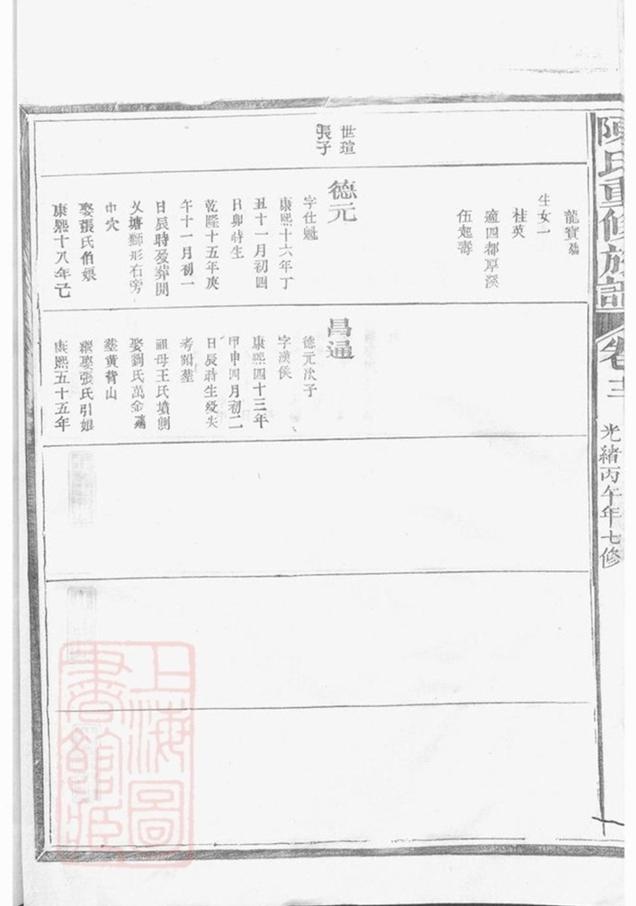 陳氏重修族譜
卷十二
光緒丙午年七修
世瑄
長子
龍寶
生女一
桂英
適四都厚溪
伍起壽
德元
字仕魁
康熙十六年丁
丑十一月初四
日卯時生
乾隆十五年庚
午十一月初一
日辰時歿葬開
乂塘獅形右旁
中穴
娶張氏伯娘
康熙十八年己
昌逼
德元次子
字漢侯
康熙四十三年
甲申四月初二
日辰時生歿失
考附塟
祖母王氏墳側
娶劉氏萬金
塟黃背山
繼娶張氏引娘
康熙五十五年
上海圖
書館